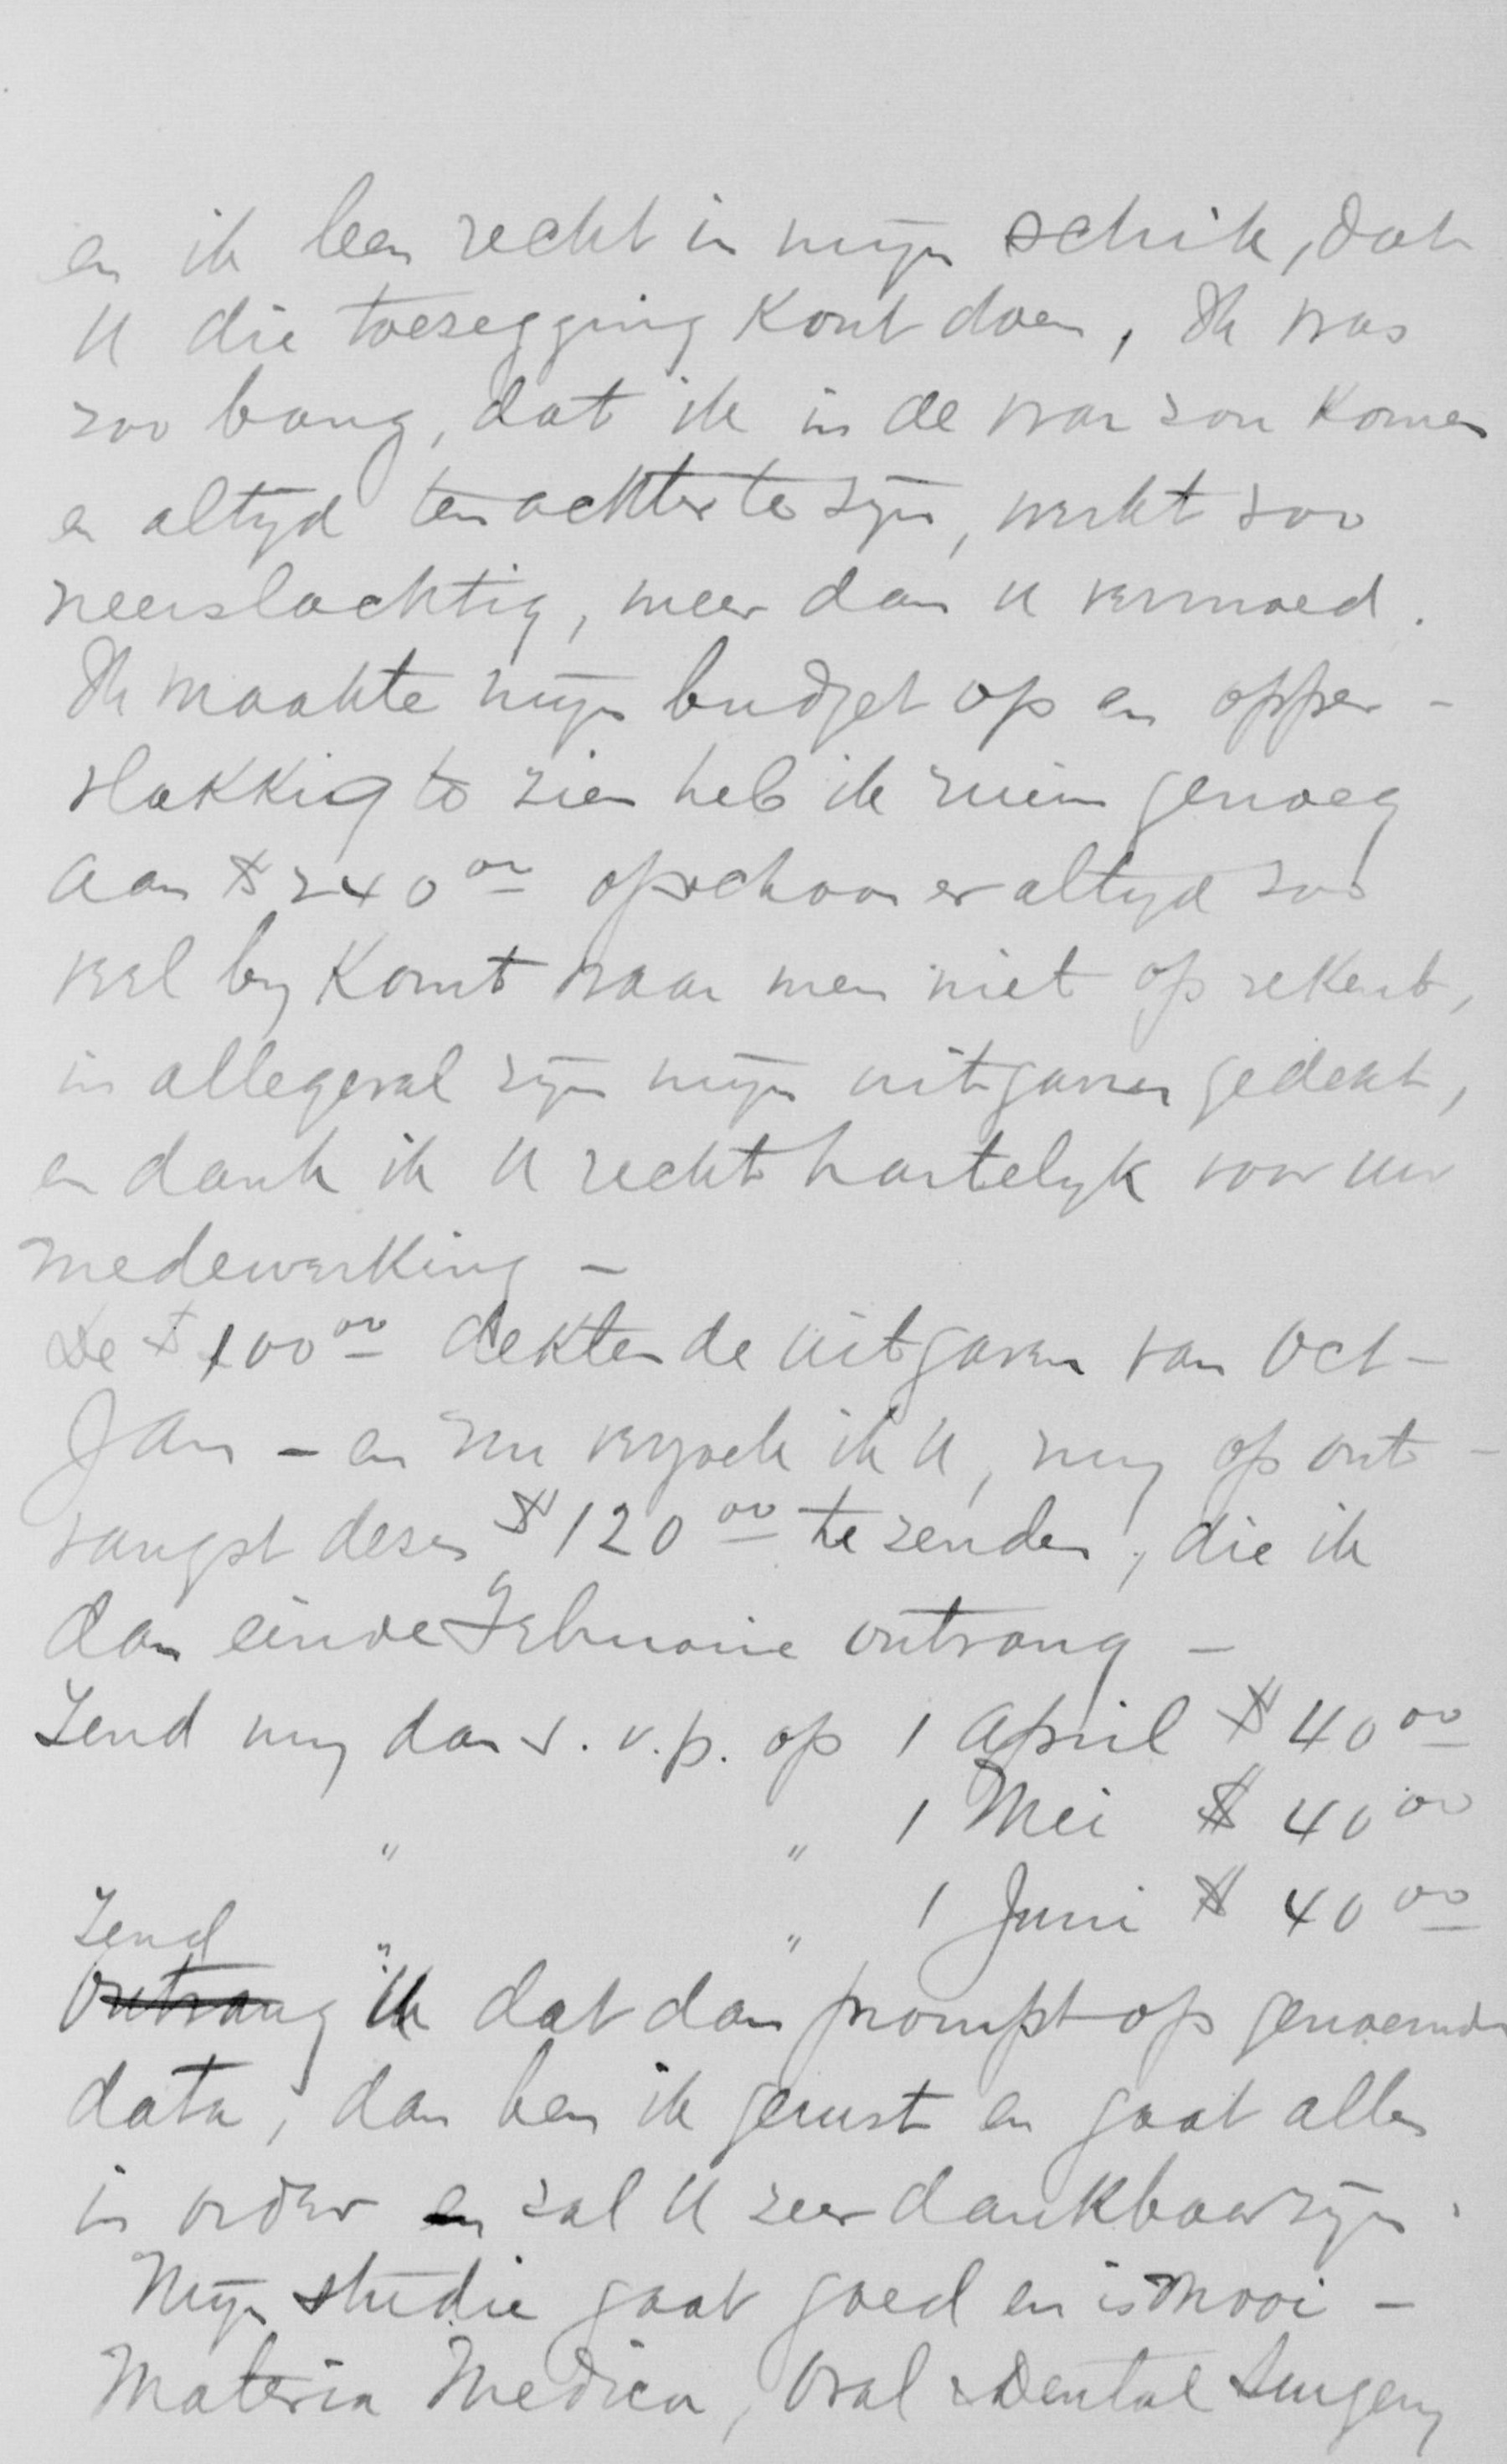 en ik ben recht in mijn schik, dat
U die toezegging kont doen, Ik was
zoo bang, dat ik in de war zou komen
en altyd ten achter te zyn, werkt zoo
neerslachtig, meer dan U vermoed.
Ik maakte mijn budget op en opper-
vlakkig te zien heb ik ruim genoeg
aan $240.00 opschoon er altyd zoo
veel by komt waar men niet op rekent,
in allegeval zyn mijn uitgaven gedekt,
en dank ik U recht hartelyk voor uw
medewerking –
De $100.00 dekten de uitgaven van Oct –
Jan – en nu verzoek ik U, my op ont-
vangst dezes $120.00 te zenden, die ik
dan einde Februarie ontvang –
Zend my dan s.v.p. op 1 April $40.00
" " 1 Mei $40.00
" " 1 Juni $40.00
Zend
Ontvang ik dat dan prompt op genoemde
data, dan ben ik gerust en gaat alles
in order en zal U zeer dankbaar zyn.
Mijn studie gaat goed en is mooi –
Materia Medica, Oral & Dental Surgery